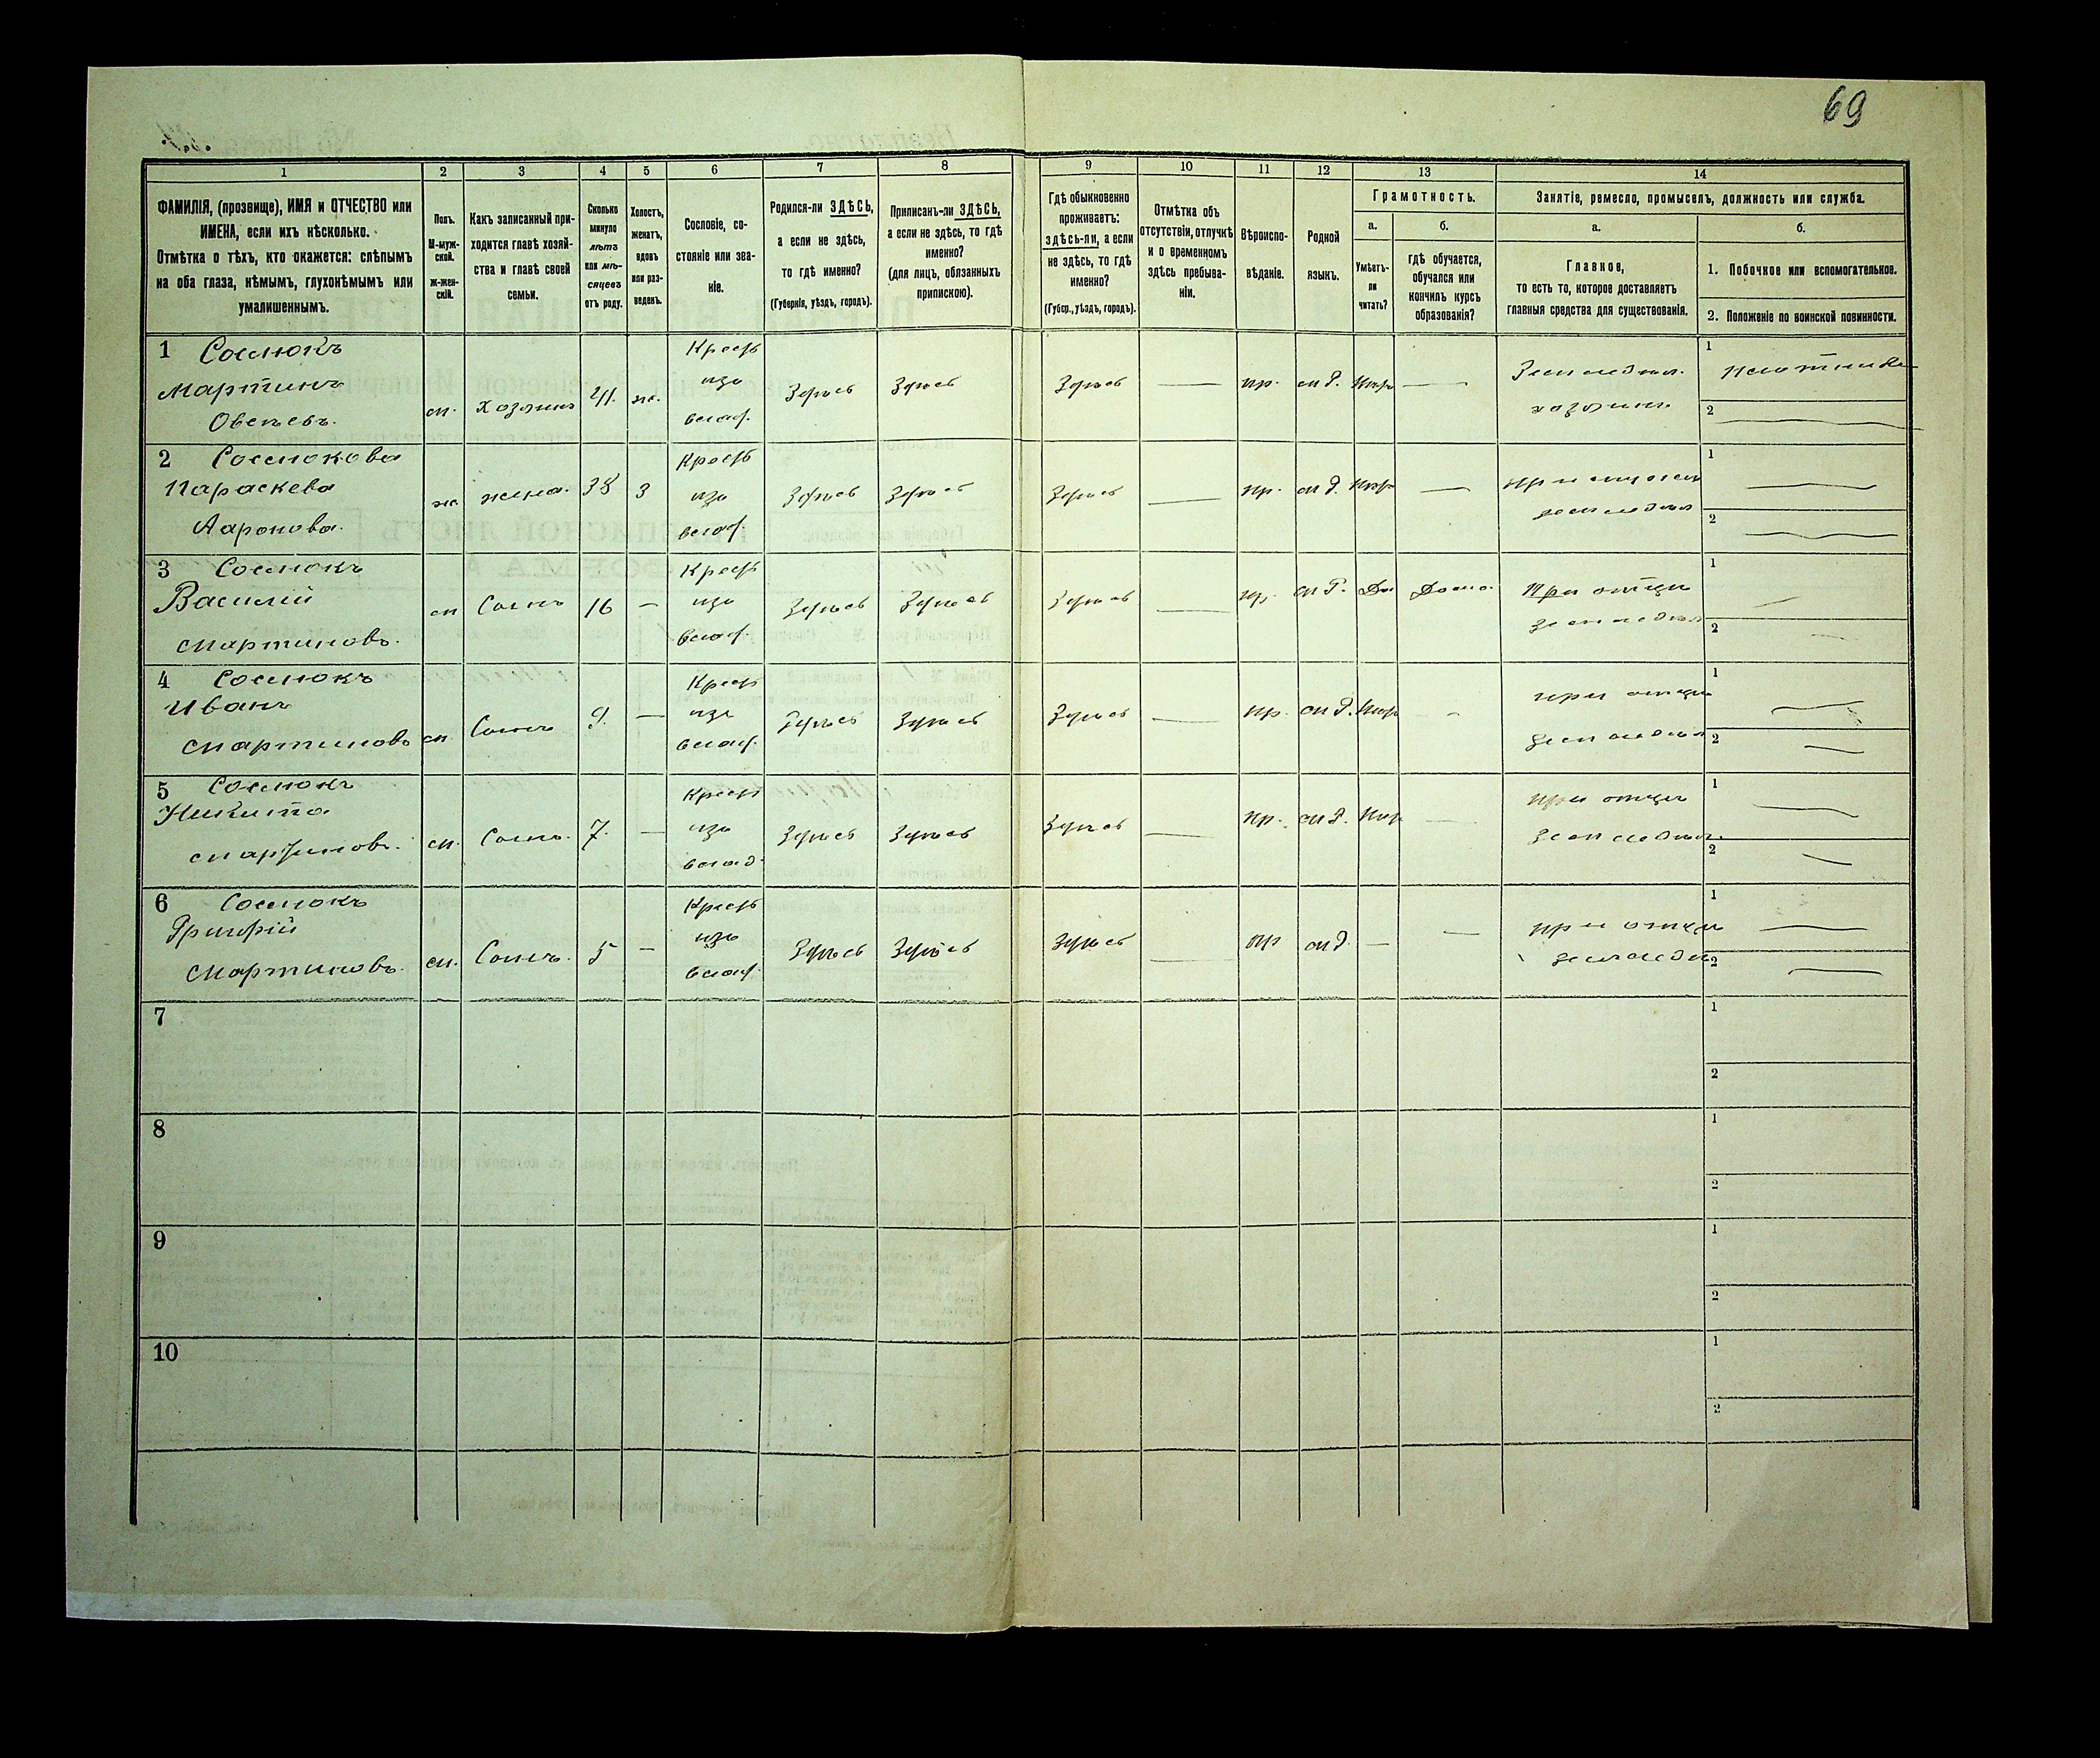 69
1
2
3
4
5
6
7
8
9
10
11
12
13
14
ФАМИЛІЯ, (прозвище), ИМЯ и ОТЧЕСТВО или
ИМЕНА, если ихъ нѣсколько.
Отмѣтка о тѣхъ, кто окажется: слѣпымъ
на оба глаза, нѣмымъ, глухонѣмымъ или
умалишеннымъ.
Полъ.
М-муж-
ской.
ж-жен-
скій.
Какъ записанный при-
ходится главѣ хозяй-
ства и главѣ своей
семьи.
Сколько
минуло
лѣтъ
или мѣ-
сяцевъ
отъ роду.
Холостъ,
женатъ,
вдовъ
или раз-
веденъ.
Сословіе, со-
стояніе или зва-
ніе.
Родился-ли ЗДѢСЬ,
а если не здѣсь,
то гдѣ именно?
(Губернія, уѣздъ, городъ).
Приписанъ-ли ЗДѢСЬ,
а если не здѣсь, то гдѣ
именно?
(для лицъ, обязанныхъ
припискою).
Гдѣ обыкновенно
проживаетъ:
здѣсь-ли, а если
не здѣсь, то гдѣ
именно?
(Губер., уѣздъ, городъ).
Отмѣтка объ
отсутствіи, отлучкѣ
и о временномъ
здѣсь пребыва-
ніи.
Вѣроиспо-
вѣданіе.
Родной
языкъ.
Грамотность.
а.
Умѣетъ-
ли
читать?
б.
гдѣ обучается,
обучался или
кончилъ курсъ
образованія?
Занятіе, ремесло, промыселъ, должность или служба.
а.
Главное,
то есть то, которое доставляетъ
главныя средства для существованія.
б.
1. Побочное или вспомогательное.
2. Положеніе по воинской повинности.
1
Мартинъ
м.
Хозяинъ
41.
ж.
Крест
изъ
влад.
Здѣсь
Здѣсь
Здѣсь
—
пр.
м д.
—
хозяинъ
1
2
2
Параскева
Ааронова.
ж
жена.
38
З
Крест
изъ
влад.
Здѣсь
Здѣсь
Здѣсь
—
пр.
м д.
—
1
2
3
Василій
Мартиновъ.
м
Сынъ
16
—
Крест
изъ
влад.
Здѣсь
Здѣсь
Здѣсь
—
пр.
м д.
Да
Дома.
При отцѣ
1
2
4
Иванъ
Мартиновъ
м
Сынъ
9.
—
Крест
изъ
влад.
Здѣсь
Здѣсь
Здѣсь
—
пр.
м д.
при отцѣ
1
2
5
Никита
Мартиновъ.
м.
Сынъ.
7.
—
Крест
изъ
влад.
Здѣсь
Здѣсь
Здѣсь
—
пр.
м д.
при отцѣ
1
2
6
Мартиновъ.
м.
Сынъ.
5
—
Крест
изъ
влад.
Здѣсь
Здѣсь
Здѣсь
—
пр
м д.
—
—
при отцѣ
1
2
7
1
2
8
1
2
9
1
2
10
1
2